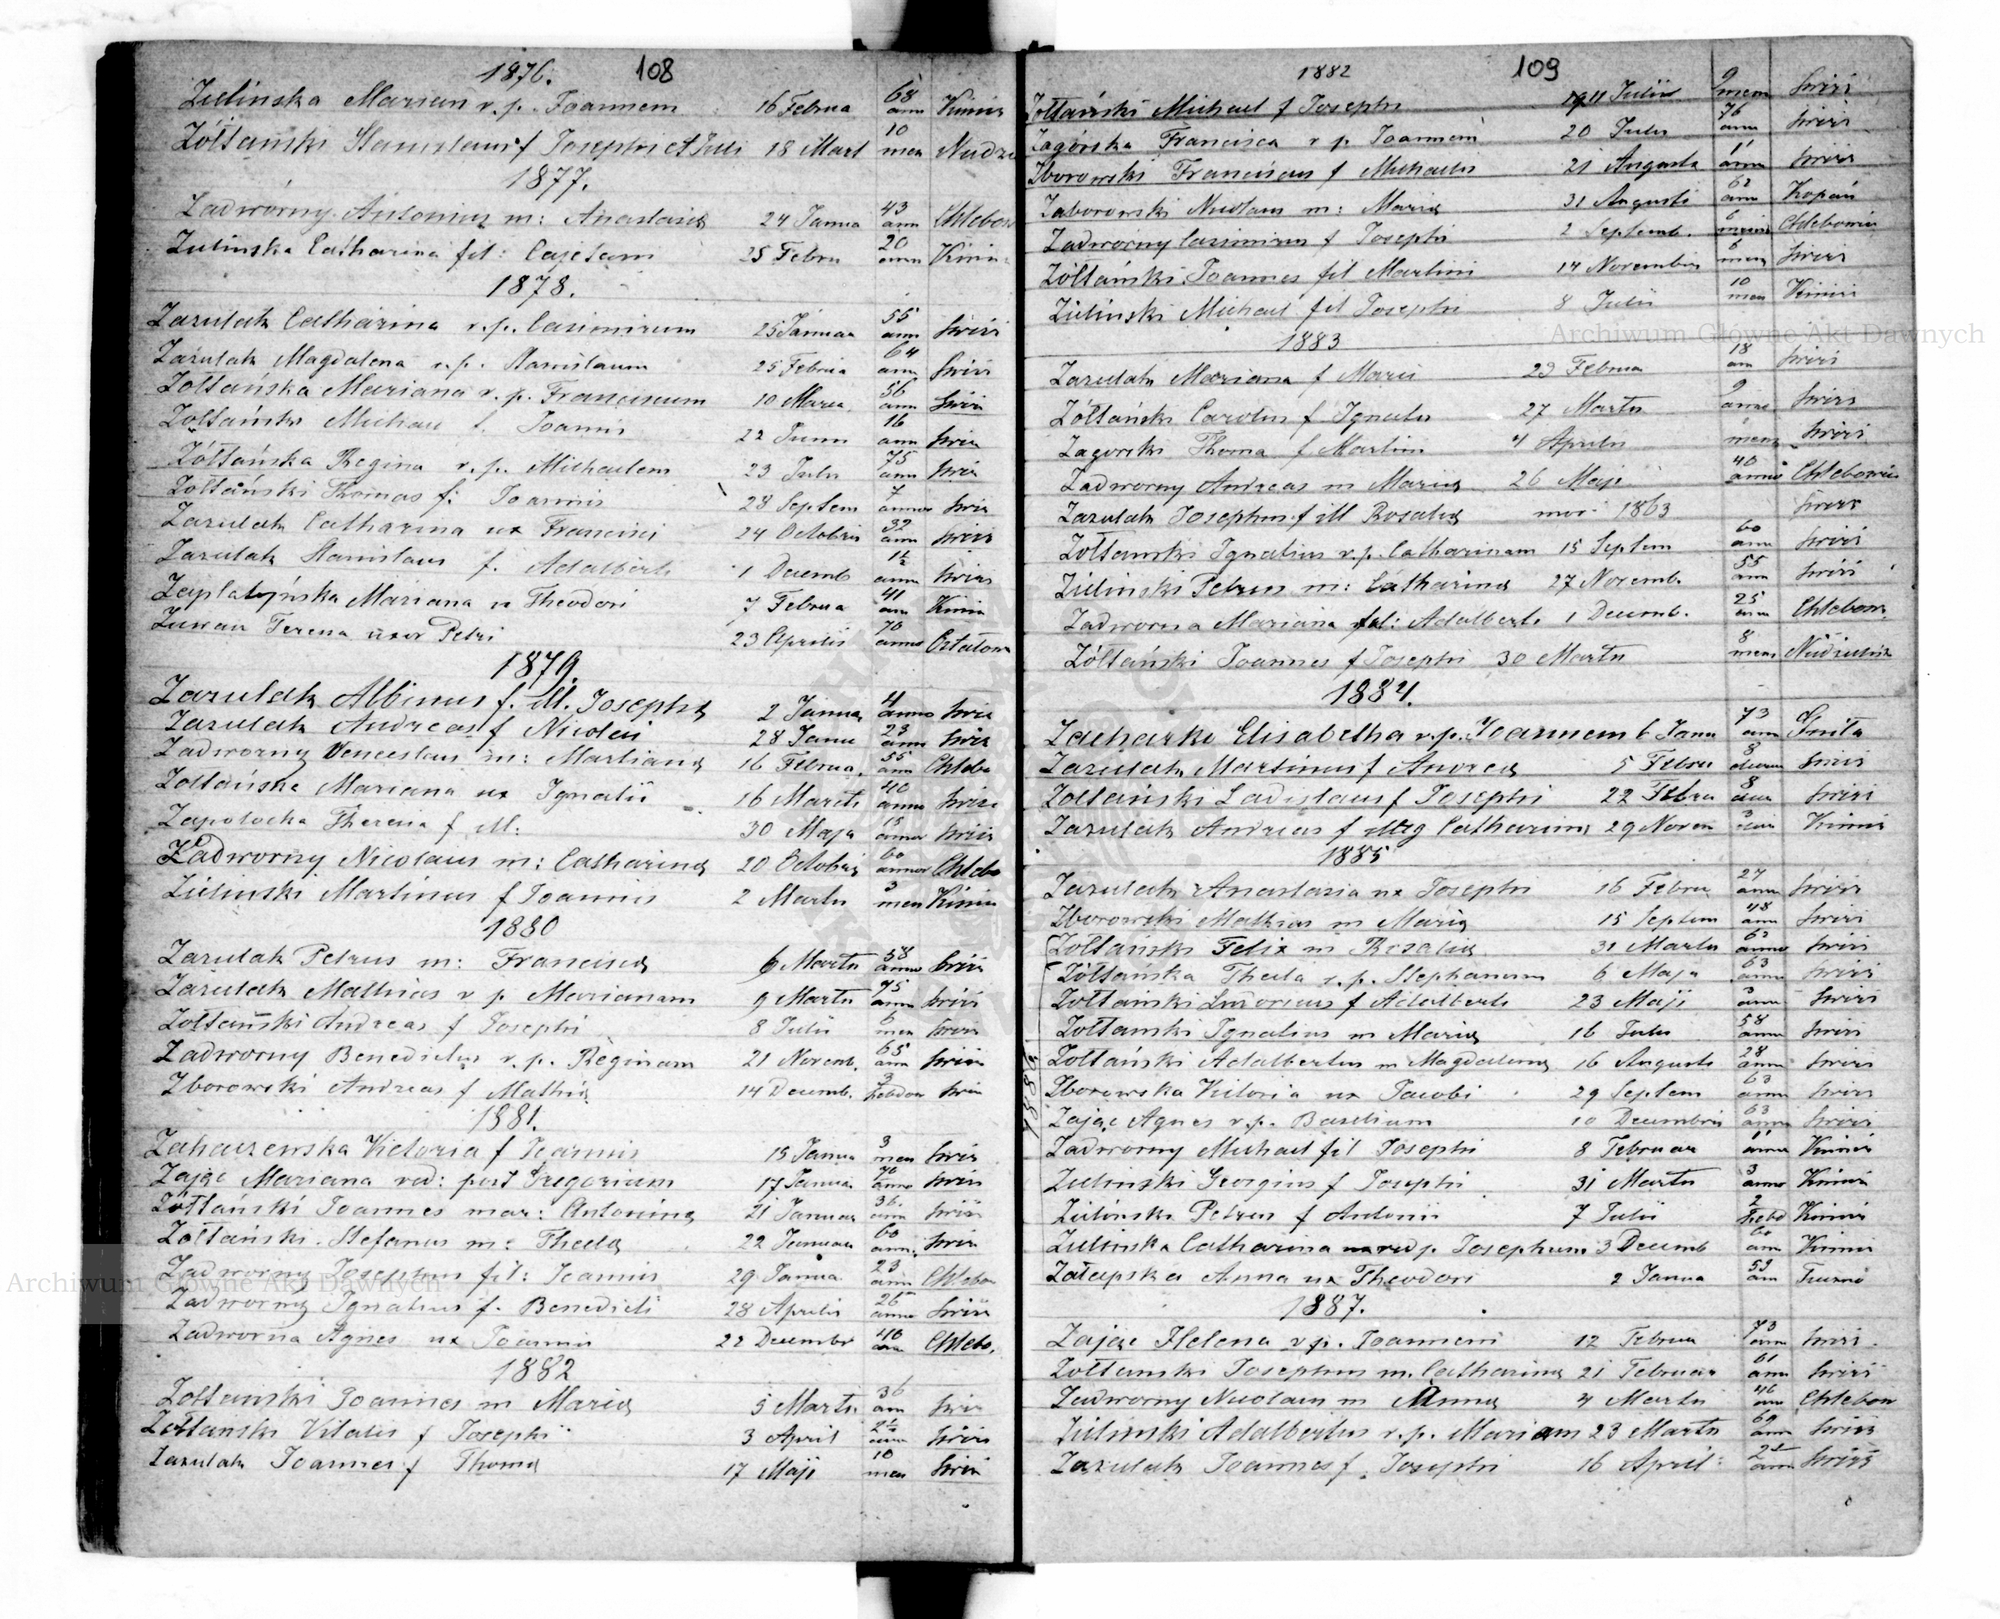 1876. 108
Zielinska Marian v. p. Joannem 16 Februa 68 ann Kimir
Żółtański Stanislaus f Josephi et Juli 18 Mart 10 men Nudzi
1877.
Zadworny Antonius m: Anastasia 24 Janua 43 ann Chlebow
Zielinska Catharina fil: Cajetani 25 Febru 20 ann Kimir
1878.
Zazulak Catharina v. p. Casimirum 25 Januar 55 ann Swirz
Zazulak Magdalena v. p. Stanislaum 25 Februa 64 ann Swirz
Żółtańska Mariana v. p. Franciscum 10 Marci 56 ann Swirz
Żółtański Michael f. Joannis 22 Junii 16 ann Swirz
Żółtańska Regina v. p. Michaelem 23 Julii 75 ann Swirz
Żółtański Thomas f: Joannis 28 Septem 7 annor Swirz
Zazulak Catharina ux Francisci 24 Octobris 32 ann Swirz
Zazulak Stanislaus f. Adalberti 1 Decemb 1½ anni Swirz
Zaplatyńska Mariana u Theodori 7 Februa 41 ann Kimir
Teresa uxor Petri 23 Aprilii 70 annor
1879.
Zazulak Albinus f. ill. Josepha 2 Januar 4 annor Swirz
Zazulak Andreas f Nicolai 28 Janu 23 anni Swirz
Zadworny Venceslaus m: Marianna 16 Februa. 55 ann Chlebo
Żółtańska Mariana ux Ignatii 16 Martii 40 annor Swirz
Zapotocka Theresa f. ill: 30 Maja 15 annor Swirz
Zadworny Nicolaus m: Catharina 20 Octobris 60 annor Chlebo
Zielinski Martinus f Joannis 2 Martii 3 men Kimir
1880
Zazulak Petrus m: Francisca 6 Martii 58 annor Swirz
Zazulak Mathias v p. Marianam 9 Martii 75 ann Swirz
Żółtański Andreas f Josephi 8 Julii 6 men Swirz
Zadworny Benedictus v. p. Reginam 21 Novemb. 65 ann Swirz
Zborowski Andreas f Mathia 14 Decemb. 3 hebdom Swirz
1881.
Victoria f Joannis 15 Janua 3 men Swirz
Zając Mariana vid: post Gregorium 17 Januar 70 anno Swirz
Żółtański Joannes mar: Antonina 21 Januar 36 ann Swirz
Żółtański Stefanus m: Thecla 22 Januar 60 ann. Swirz
Zadworny Josephus fil: Joannis 29 Janua 23 ann Chlebo
Zadworny Ignatius f. Benedicti 28 Aprilis 26 anno Swirz
Zadworna Agnes ux Joannis 22 Decembr 40 ann Chlebo.
1882
Żółtański Joannes m Maria 5 Marti 36 ann Swirz
Żółtański Vitalis f Josephi 3 April 2½ ann Swirz
Zazulak Joannes f Thoma 17 Maji 10 men Swirz
1882 109
Żółtański Michael f Josephi 11 Julii 9 men Swirz
Zagórska Francisca v p Joannem 20 Julii 76 ann Swirz
Zborowski Franciscus f Michaelis 21 Augusti 11 ann Swirz
Zaborowski Nicolaus m: Maria 31 Augusti 62 ann Kopań
Zadworny Casimirus f Josephi 2 Septemb. 6 Chlebowic
Żółtański Joannes fil Martini 14 Novembris 6 men Swirz
Zieliński Michael fil Josephi 8 Julii 10 men Kimir
1883
Zazulak Mariana f Maria 23 Februa 18 ann Swirz
Żółtański Carolus f Ignatii 27 Martii 9 anno Swirz
Zagorski Thoma f Martini 4 Aprilis mens Swirz
Zadworny Andreas m Maria 26 Maji 40 annor Chlebowic
Zazulak Josephus f ill Rosalia 1863 Swirz
Żółtański Ignatius v. p. Catharinam 15 Septem 60 ann Swirz
Zieliński Petrus m: Catharina 27 Novemb. 55 ann Swirz
Zadworna Mariana fil: Adalberti 1 Decemb. 25 ann Chlebow.
Żółtański Joannes f Josephi 30 Martii 8 mens
1884.
Zacharko Elisabetha v. p. Joannem 6 Janu 73 ann
Zazulak Martinus f Andrea 5 Febru 8 dierum Swirz
Żółtański Ladislaus f Josephi 22 Febru 8 Swirz
Zazulak Andreas f illeg Catharina 29 Novem 3 Kimir
1885
Zazulak Anastasia ux Josephi 16 Febru 27 anno Swirz
Zborowski Mathias m Maria 15 Septem 48 ann Swirz
Żółtański Felix m Rosalia 31 Martii 62 annor Swirz
1886
Żółtańska Thecla v. p. Stephanum 6 Maja 63 ann Swirz
Żółtański Ludovicus f Adalberti 23 Maji 3 ann Swirz
Żółtański Ignatius m Maria 16 Julii 58 anno Swirz
Żółtański Adalbertus m Magdalena 16 Augusti 28 ann Swirz
Zborowska Victoria ux Jacobi 29 Septem 63 ann Swirz
Zając Agnes v. p. Basilium 10 Decembris 63 ann Swirz
Zadworny Michael fil Josephi 8 Februar 1 anni Kimir
Zielinski Georgius f Josephi 31 Martii 3 anno Kimir
Zieliński Petrus f Antonii 7 Julii 2 hebd Kimir
Zielińska Catharina vid p. Josephum 3 Decemb 60 ann Kimir
Załapska Anna ux Theodori 2 Janua 53 ann
1887.
Zając Helena v p. Joannem 12 Februa 73 ann Swirz.
Żółtański Josephus m. Catharina 21 Februar 61 ann Swirz
Zadworny Nicolaus m Anna 4 Martii 46 ann Chlebow
Zieliński Adalbertus v. p. Mariam 23 Martii 69 ann Swirz
Zazulak Joannes f. Josephi 16 April: 2½ ann Swirz
Archiwum Główne Akt Dawnych
Archiwum Główne Akt Dawnych